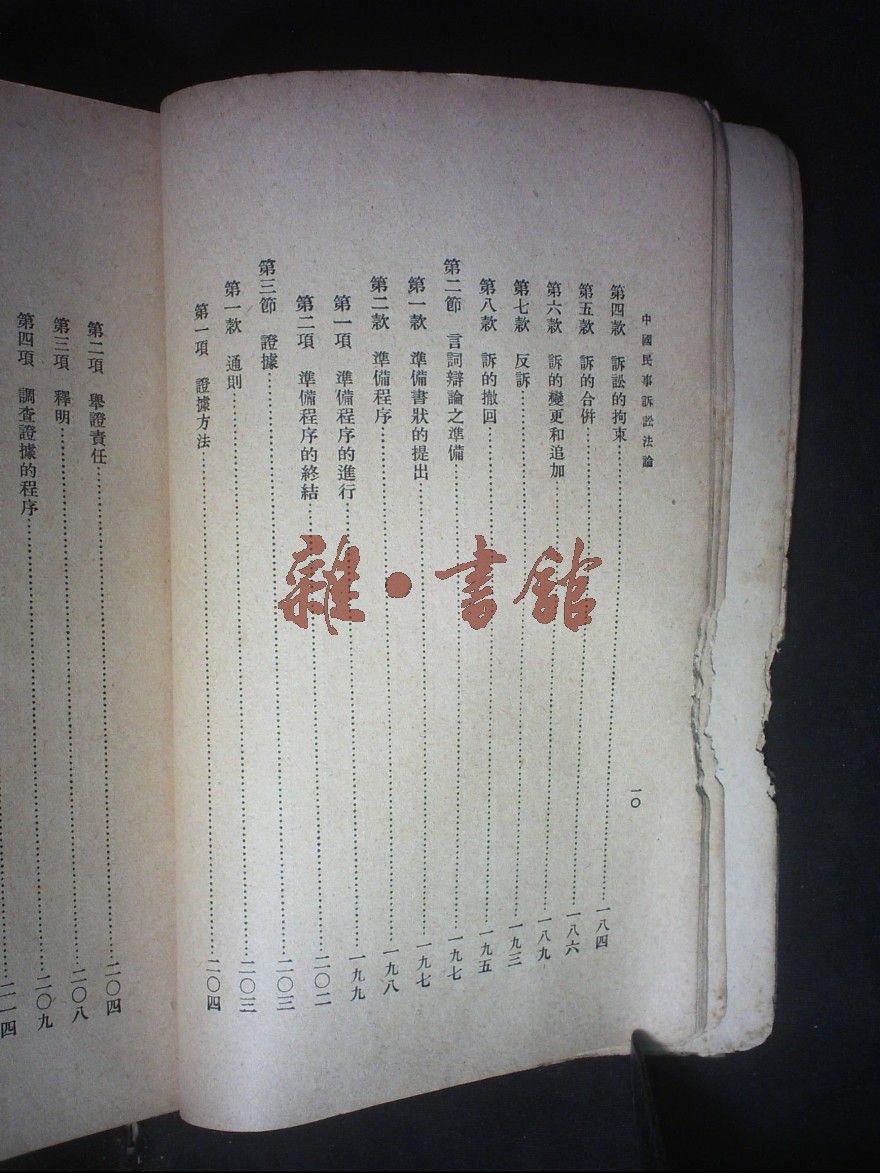 中國民事訴訟法論
一〇
第四款 訴訟的拘束……一八四
第五款 訴的合併……一八六
第六款 訴的變更和追加……一八九
第七款 反訴……一九三
第八款 訴的撤回……一九五
第二節 言詞辯論之準備……一九七
第一款 準備書狀的提出……一九七
第二款 準備程序……一九八
第一項 準備程序的進行……一九九
第二項 準備程序的終結……二〇二
第三節 證據……二〇三
第一款 通則……二〇三
第一項 證據方法……二〇四
第二項 舉證責任……二〇四
第三項 釋明……二〇八
第四項 調查證據的程序……二〇九
二一四
雜·書館